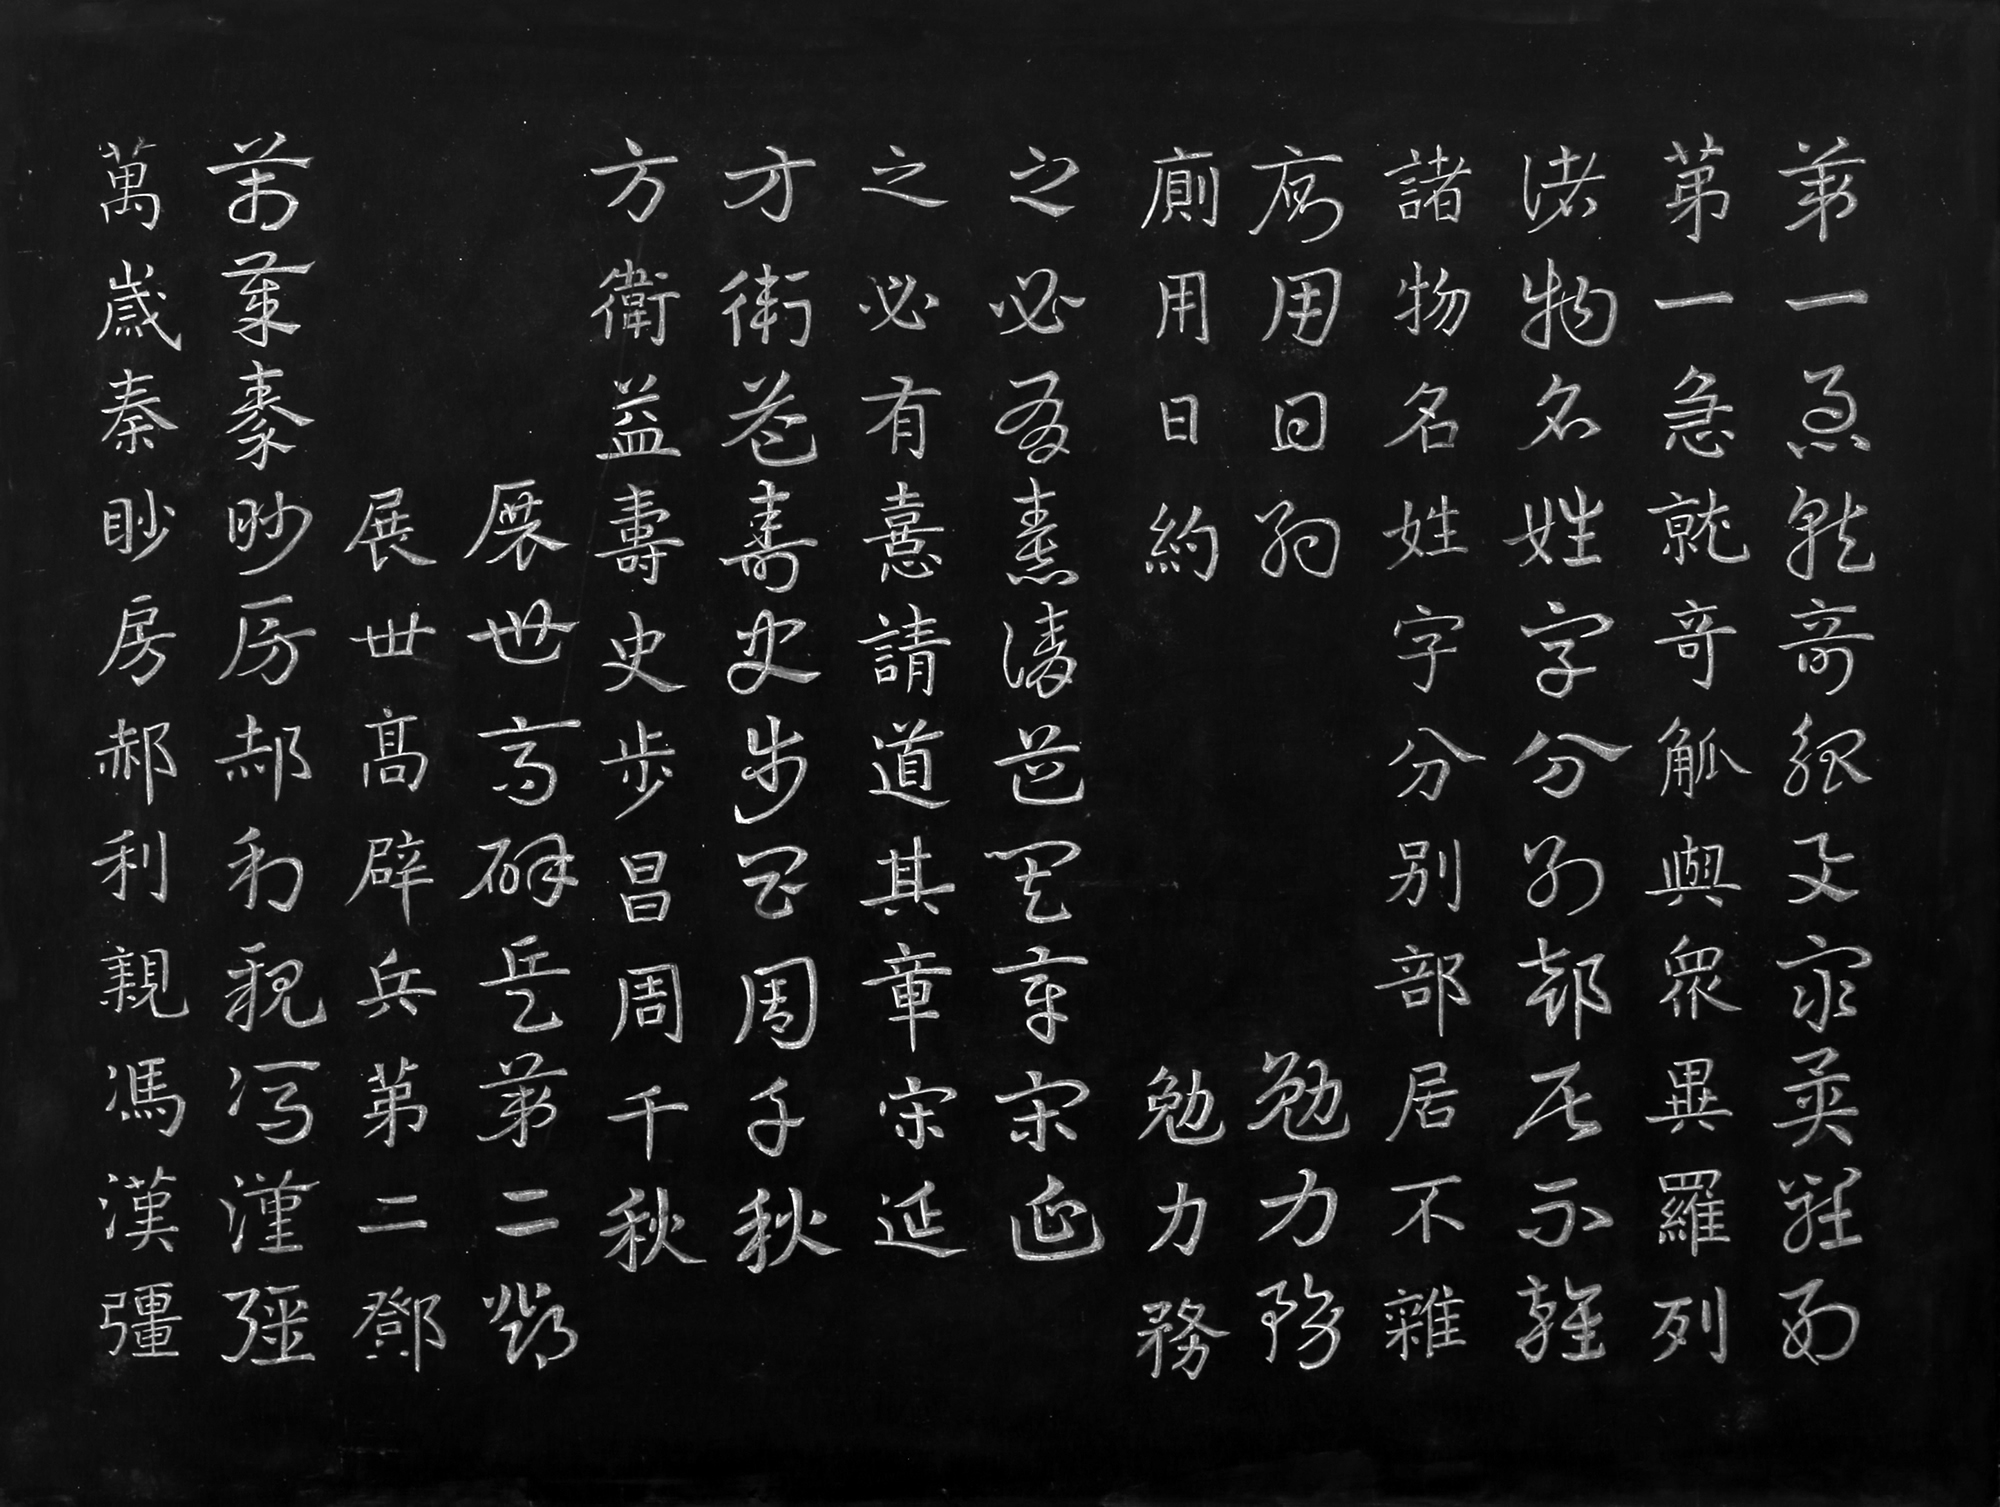 第一急就奇觚與眾異羅列
第一急就奇觚與眾異羅列
諸物名姓字分别部居不雜
諸物名姓字分别部居不雜
廁用日約 勉力務
廁用日約 勉力務
之必有憙請道其章宋延
之必有憙請道其章宋延
方衛益壽史步昌周千秋
方衛益壽史步昌周千秋
展世高辟兵第二鄧
展世高辟兵第二鄧
萬歲秦眇房郝利親馮漢彊
萬歲秦眇房郝利親馮漢彊